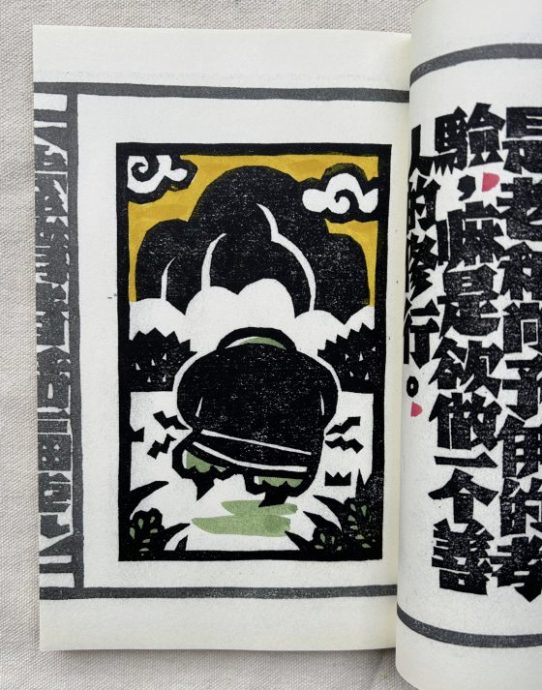 是老和尚予伊的考
驗，嘛是欲做一个善
人的修行。